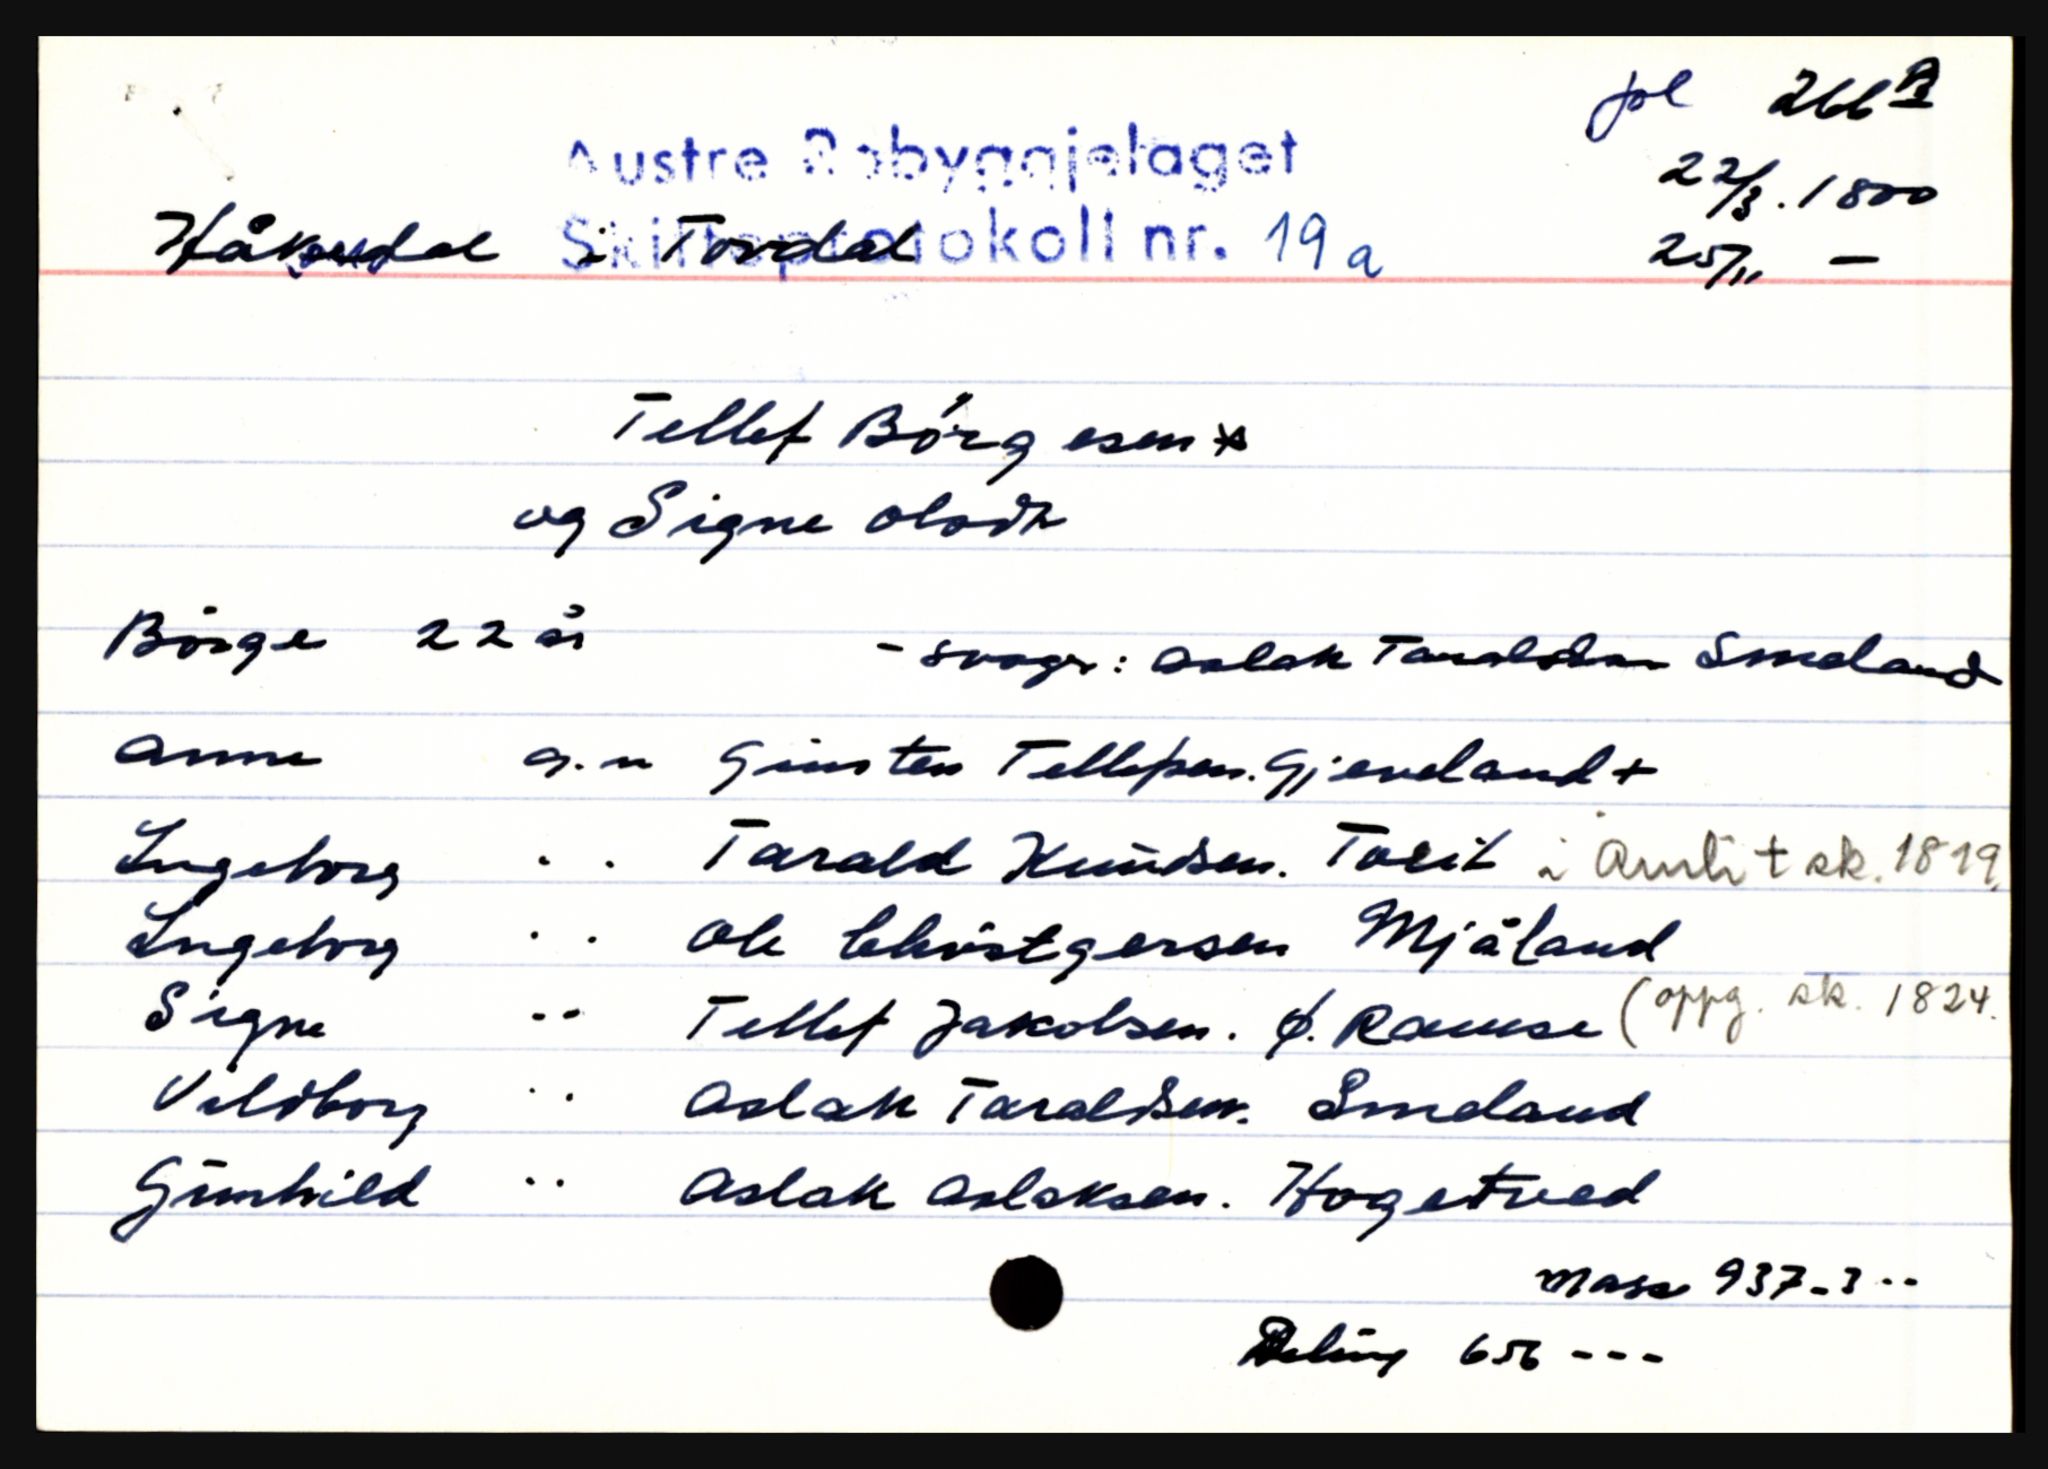 fol 266 B
Austre Robyggjelaget
22/3. 1800
Håkedal i Tovdal
Skifteprotokoll nr. 19a
25/11 —
Tellef Börgesen *
og Signe Olsdtr
Börge 22 år - svoger: Aslak Taraldsen Smeland
Anne g.m Giursten Tellefsen. Gjeveland +
Ingeborg . . Tarald Knudsen. Toveit i Åmli + sk. 1819.
Ingeborg . . Ole Christgersen Mjåland
Signe - - Tellef Jakobsen. Ø. Ramse (oppg. sk. 1824.
Valdborg . . Aslak Taraldsen. Smeland
Gunhild . . Aslak Aslaksen. Hogetveed
Masse 937-3--
Deling 656 ---